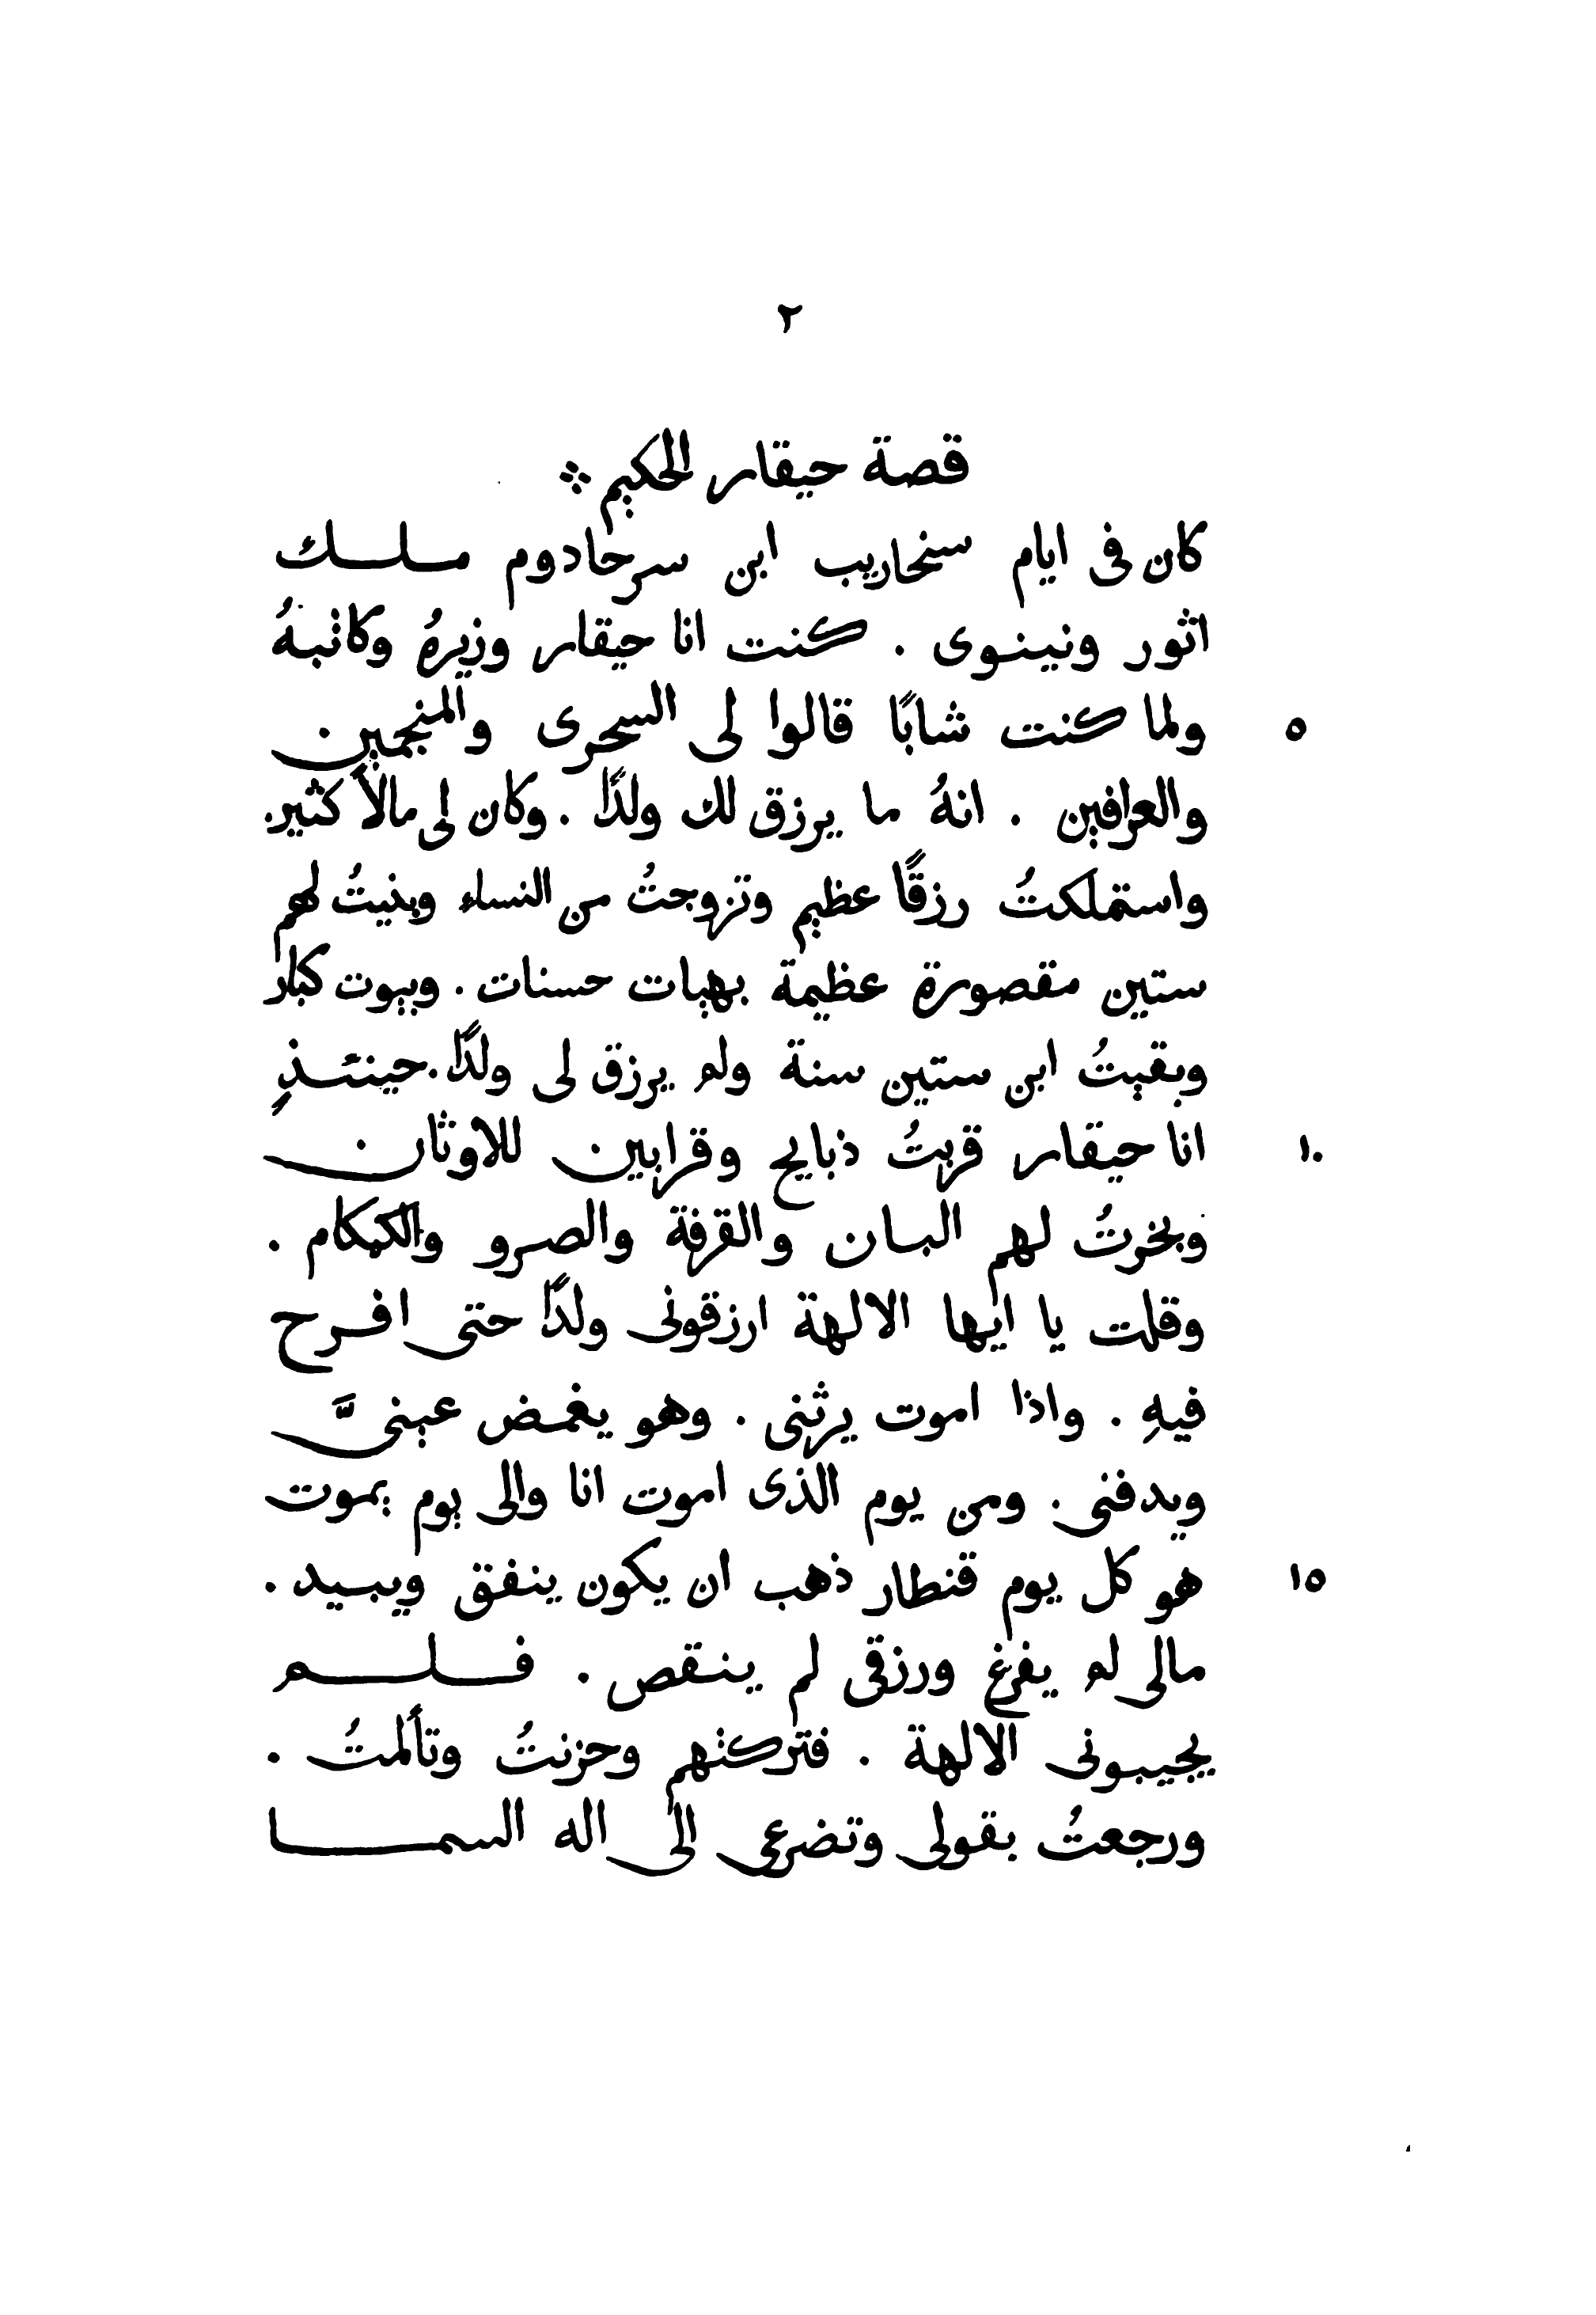 ٢
قصة حيقار الحكيم ⁘
كان فى ايام سنحاريب ابن سرحادوم مـلـــك
اثور ونينوى . كنت انا حيقار وزيرهُ وكاتبهُ
٥ ولما كنت شابًا قالوا لى السحرى والمنجمين
والعرافين . انهُ ما يرزق لك ولدًا . وكان لى مالاً كثير
واستملكتُ رزقًا عظيم وتزوجتُ من النساء وبنيتُ لهم
ستين مقصورة عظيمة بهيات حسنات . وبيوت كبار
وبقيتُ ابن ستين سنة ولم يرزق لى ولدًا . حينئذٍ
١٠ انا حيقار قربتُ ذبايح وقرابين للاوثان
وبخرتُ لهم البان والقرفة والصرو والكمكام .
وقلت يا ايها الالهة ارزقونى ولدًا حتى افرح
فيهِ . واذا اموت يرثنى . وهو يغمض عينىَّ
ويدفنى . ومن يوم الذى اموت انا والى يوم يموت
١٥ هو كل يوم قنطار ذهب ان يكون ينفق ويبيد .
مالى لم يفرغ ورزقى لم ينقص . فـلــم
يجيبونى الالهة . فتركتهم وحزنتُ وتألمتُ .
ورجعتُ بقولى وتضرعى الى اله السمـــا